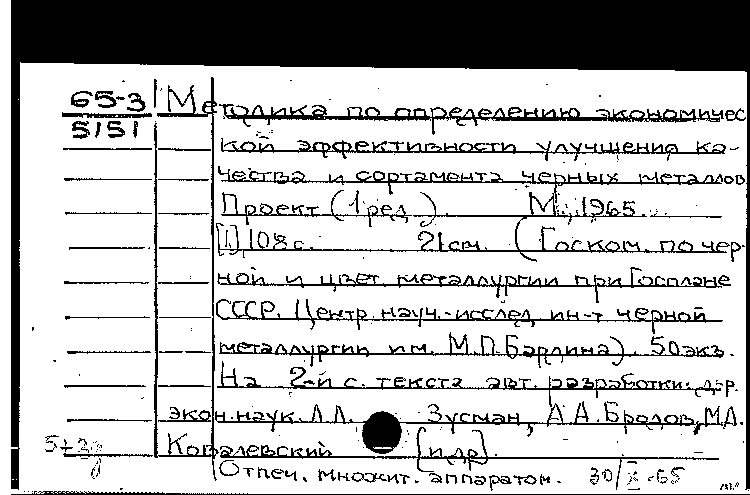 65-3 Методика по определению экономичес
5151
кой эффективности улучшения ка-
чества и сортамента черных металлов
Проект (1 ред.). М., 1965.
[1], 108 с. 21 см. (Госком. по чер-
ной и цвет. металлургии при Госплане
СССР. Центр. науч.-исслед. ин-т черной
металлургии им. М.П. Бардина). 50 экз.
На 2-й с. текста авт. разработки: д-р.
экон. наук. Л.Л. Зусман, А.А. Бродов, М.А.
Ковалевский [и др].
Отпеч. множит. аппаратом. 30/X-65